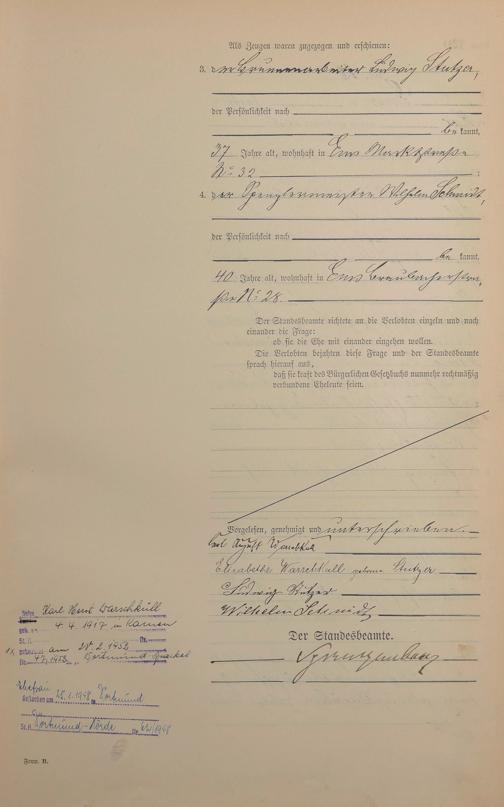 Als Zeugen waren zugezogen und erschienen:
3. der Brunnenarbeiter Ludwig Stutzer,
der Persönlichkeit nach
be kannt,
37 Jahre alt, wohnhaft in Ems Marktstraße
No 32 ;
4. der Spenglermeister Wilhelm Schmidt,
der Persönlichkeit nach
be kannt,
40 Jahre alt, wohnhaft in Ems Braubacherstra-
ße No 28.
Der Standesbeamte richtete an die Verlobten einzeln und nach
einander die Frage:
ob sie die Ehe mit einander eingehen wollen.
Die Verlobten bejahten diese Frage und der Standesbeamte
sprach hierauf aus,
daß sie kraft des Bürgerlichen Gesetzbuchs nunmehr rechtmäßig
verbundene Eheleute seien.
Vorgelesen, genehmigt und unterschrieben.
Karl August
Elisabethe geborene Stutzer
Ludwig Stutzer
Wilhelm Schmidt
Der Standesbeamte.
Karl
4.4.1917 in Kamen
am 2.1958
Dortmund
Ehefrau
Gestorben am 1948 in Dortmund
Dortmund-Hörde Nr. /1948
Form. B.